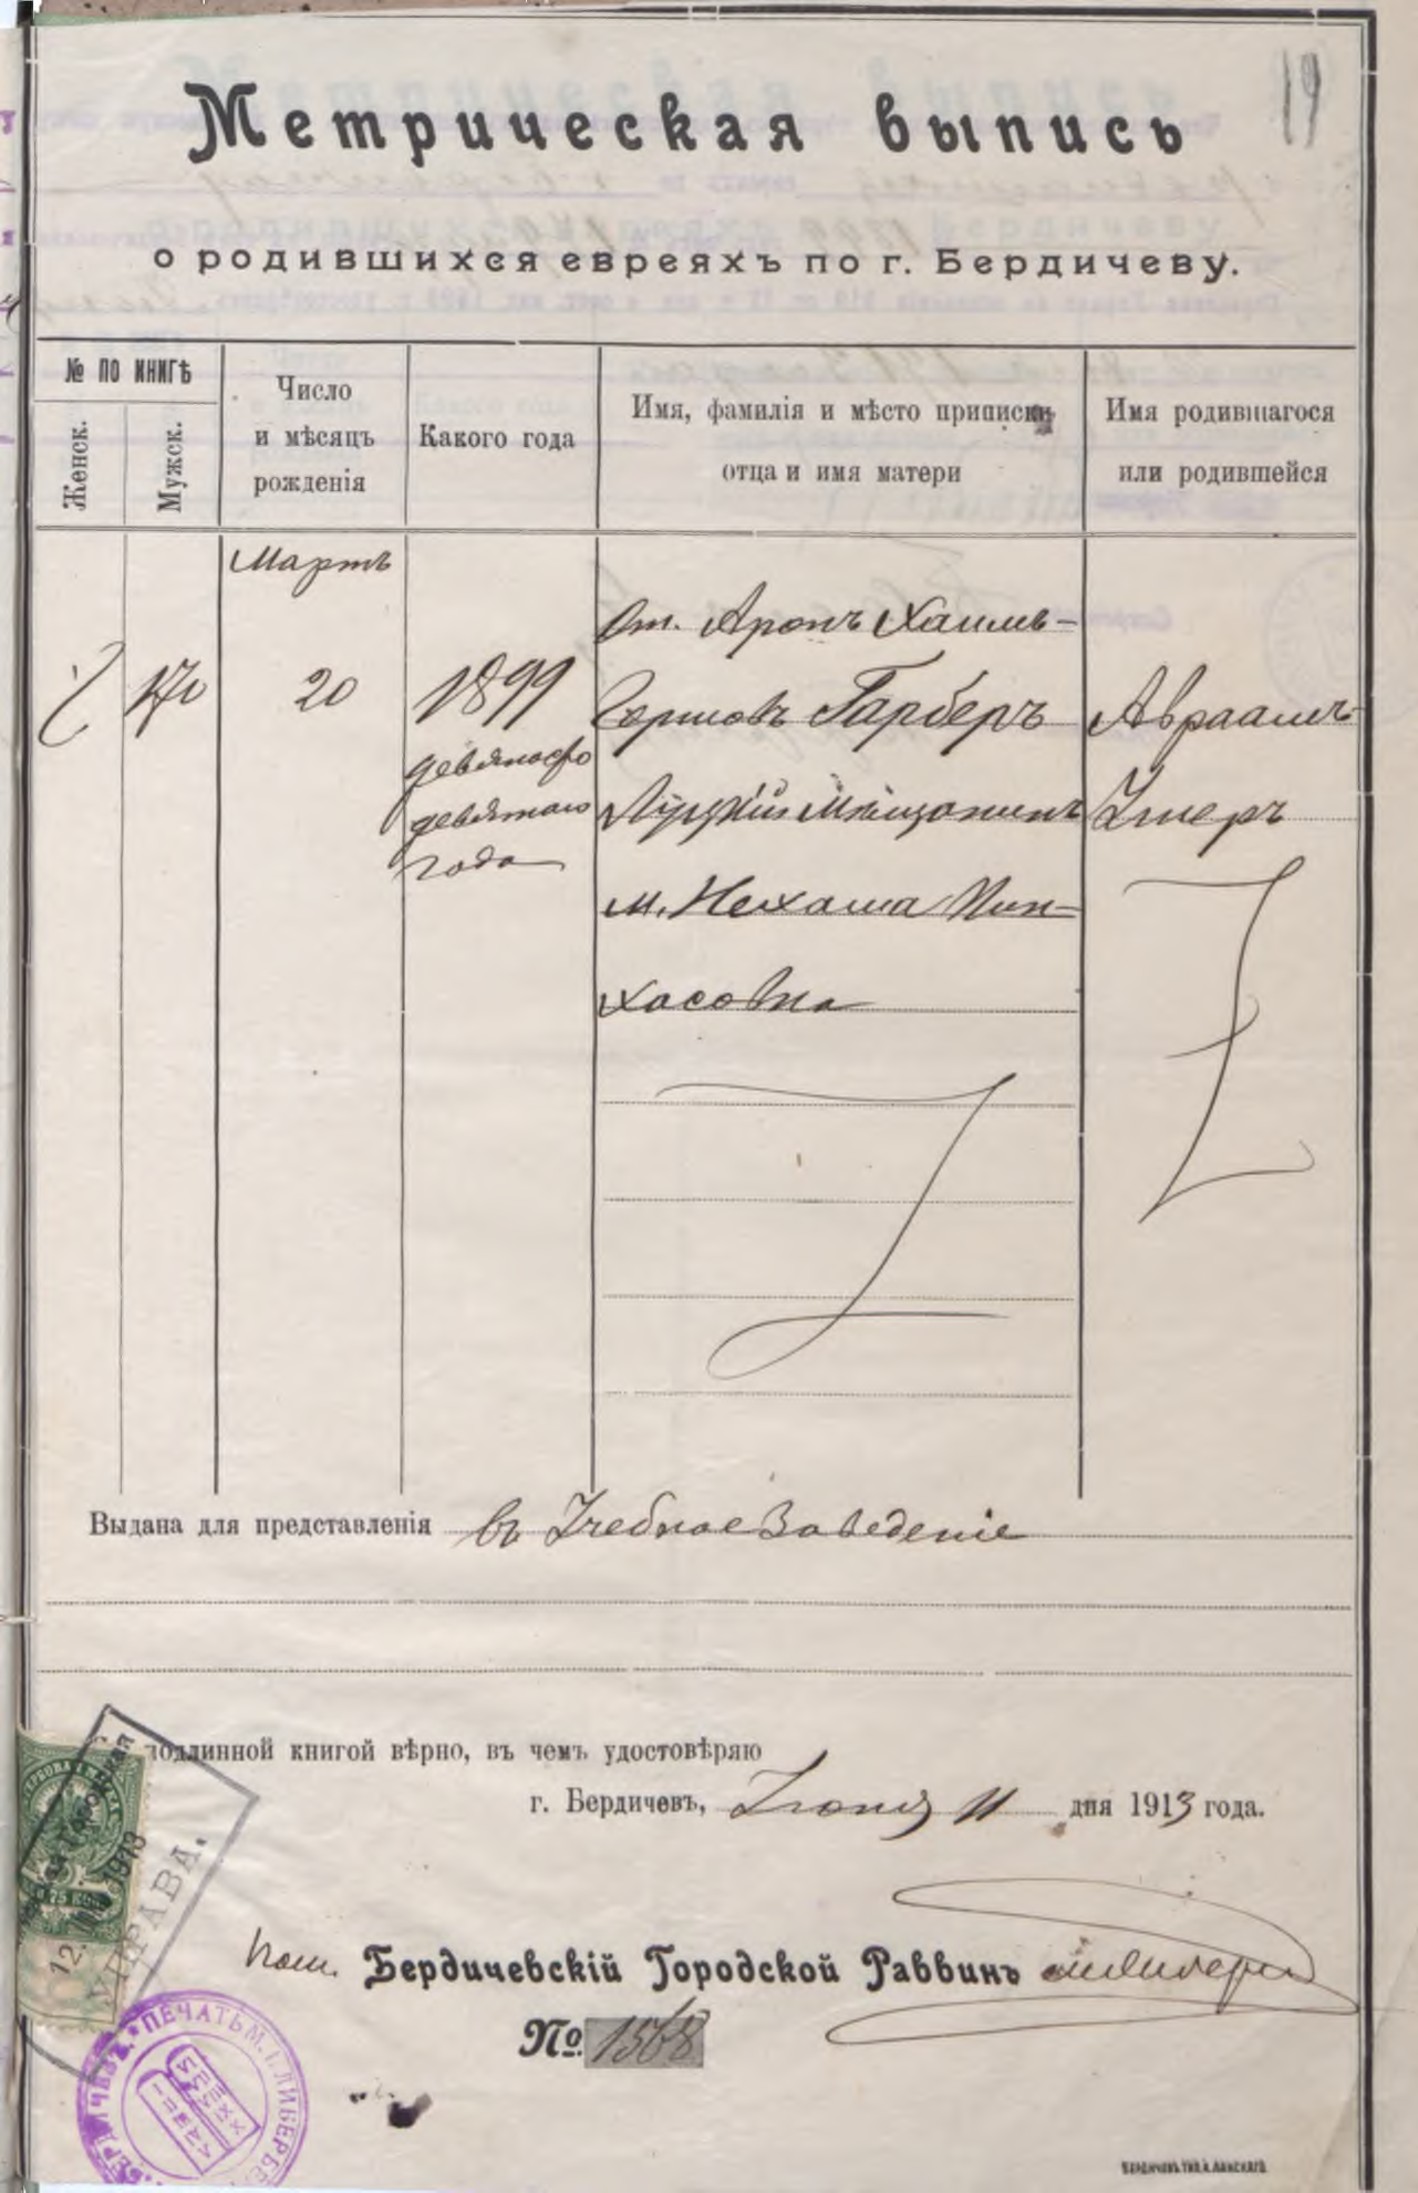 19
Метрическая выпись
о родившихся евреяхъ по г. Бердичеву.
№ ПО КНИГѢ
Женск.
Мужск.
Число
и мѣсяцъ
рожденія
Какого года
Имя, фамилія и мѣсто приписки
отца и имя матери
Имя родившагося
или родившейся
Мартъ
20
1899
девяносто
девятаго
года
От. Аронъ Хаимъ-
Гершовъ Гарберъ
Луцкій мѣщанинъ
м. Нехама Пин-
хасовна
Авраамъ-
Ушеръ
Выдана для представленія въ Учебное Заведеніе
подлинной книгой вѣрно, въ чемъ удостовѣряю
г. Бердичевъ, Іюня 11 дня 1913 года.
Пом. Бердичевскій Городской Раввинъ
№ 1568
12. 1913
УПРАВА.
75 КОП
ПЕЧАТЬ М. І. ЛИБЕРБЕ
БЕРДИЧЕВЪ